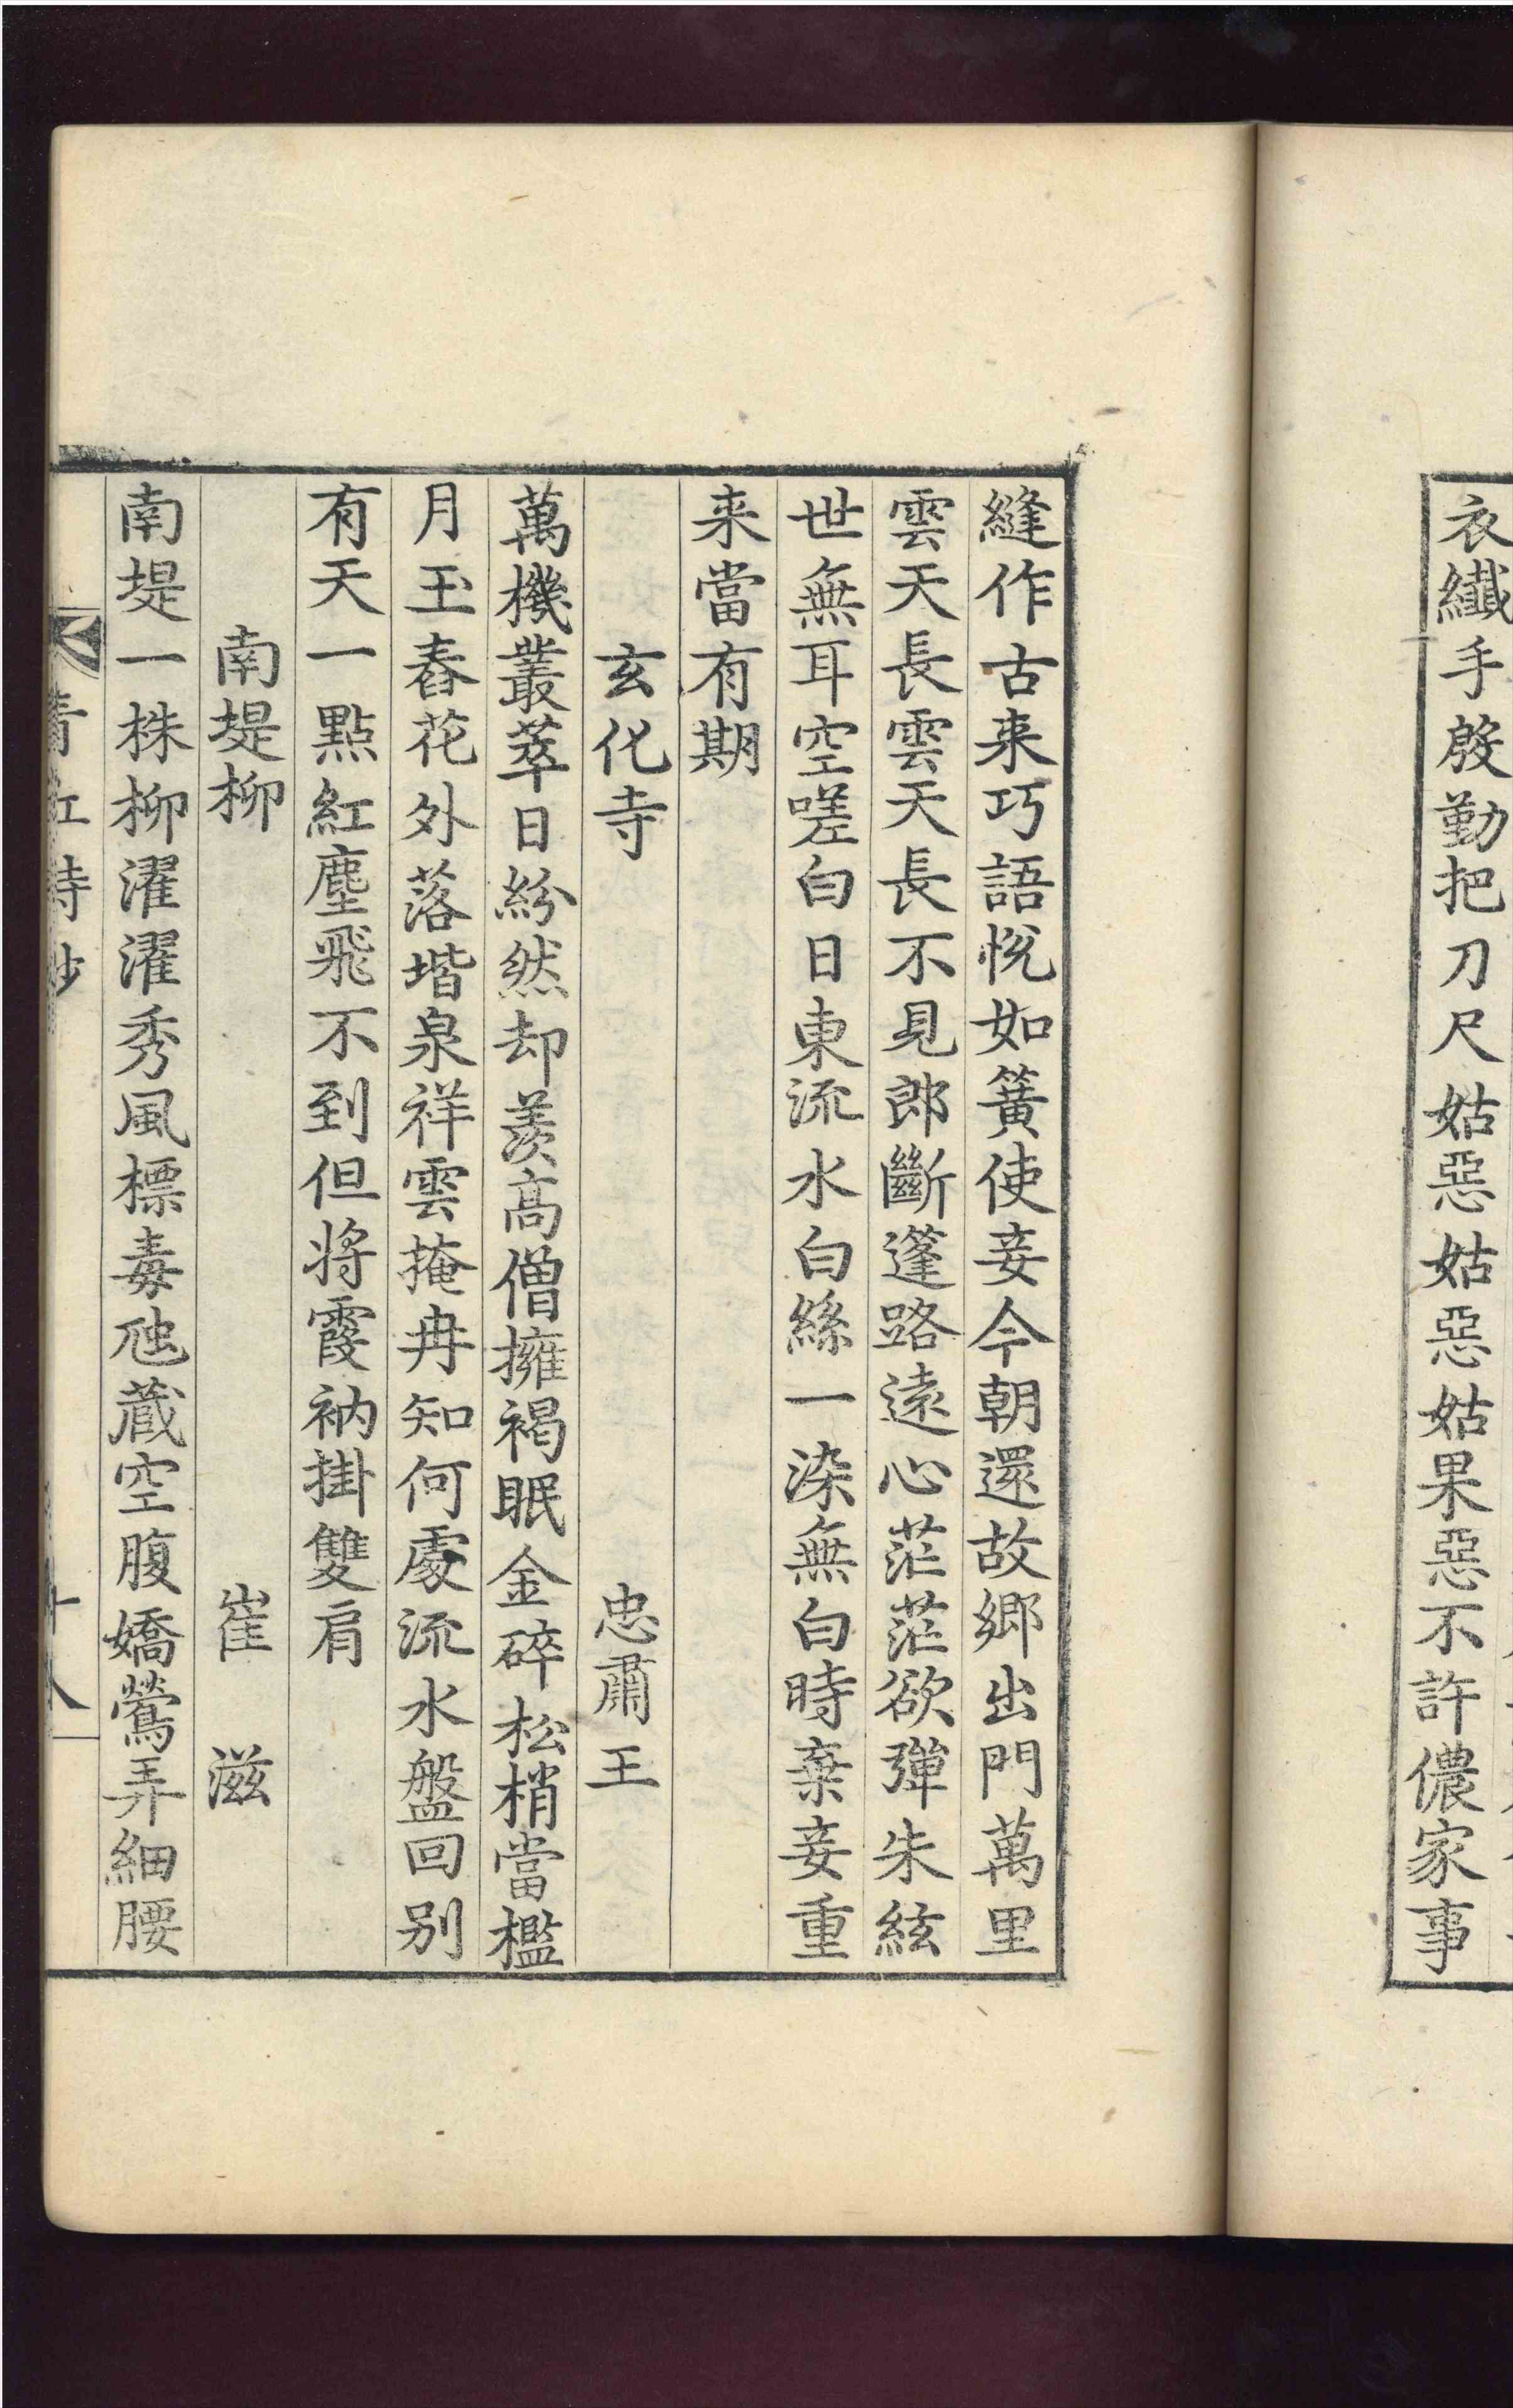 衣纖手殷勤把刀尺姑惡姑惡姑果惡不許儂家事
縫作古来巧語恱如簧使妾今朝還故郷出門萬里
雲天長雲天長不見郎斷蓬路遠心茫茫欲彈朱絃
世無耳空嗟白日東流水白絲一染無白時棄妾重
来當有期
玄化寺 忠肅王
萬機叢萃日紛然却羨高僧擁褐眠金碎松梢當檻
月玉舂花外落堦泉祥雲掩冉知何處流水盤回别
有天一點紅塵飛不到但将霞衲掛雙肩
南堤柳 崔滋
南堤一株柳濯濯秀風標毒虺蔵空腹嬌鶯弄細腰
青紅詩鈔 十八